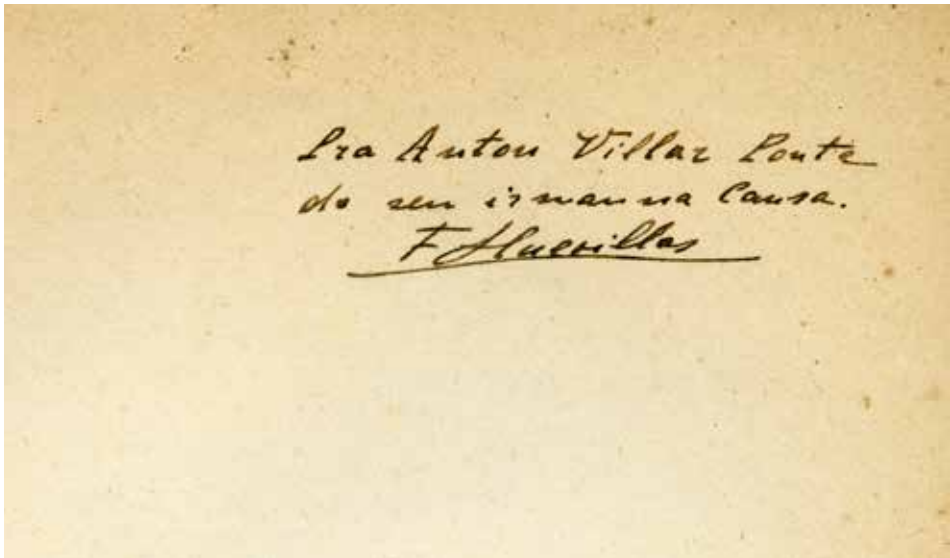 Pra Anton Villar Ponte
do seu irman na Causa.
F L Cuevillas